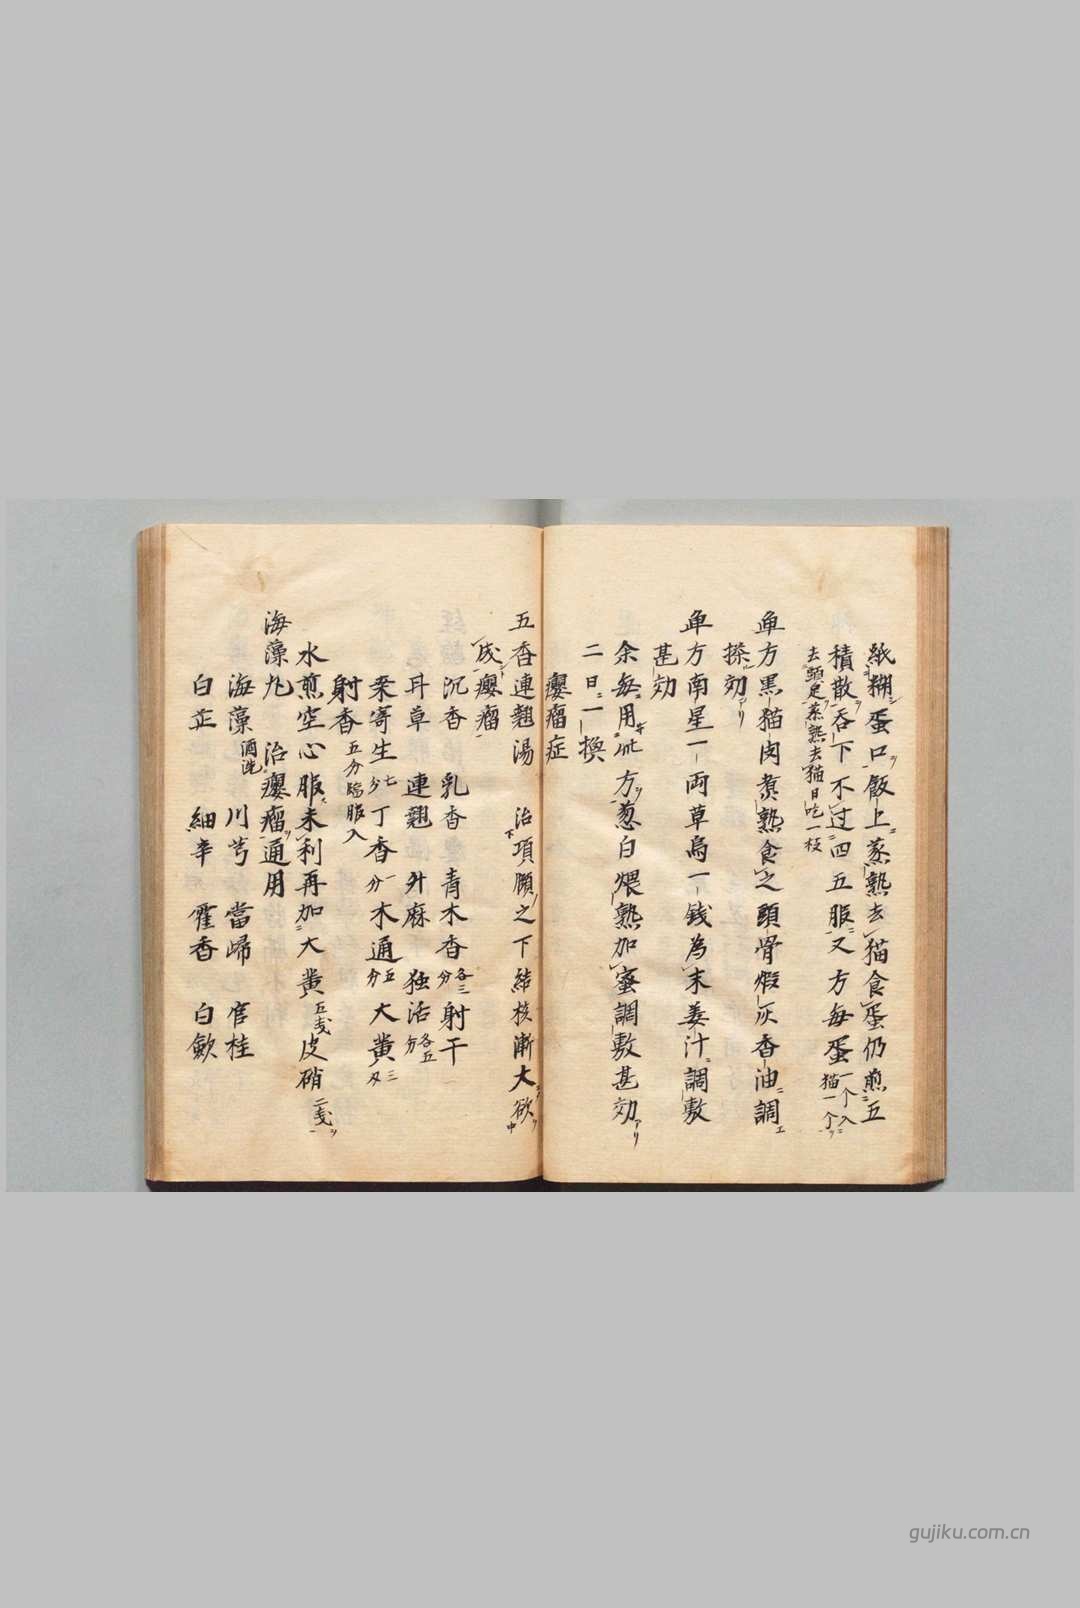 紙糊蛋口飯上蒸熟去猫食蛋仍煎五
積散吞下不过四五服又方每蛋一个入猫一个
去頭足蒸熟去猫日吃一枝
单方黒猫肉煮熟食之頭骨煅灰香油調
搽効アリ
单方南星一両草烏一錢為末姜汁調敷
甚効
余每用此方葱白煨熟加蜜調敷甚効アリ
二日一換
癭瘤症
五香連翹湯 治項頤之下結核漸大欲
成癭瘤
沉香 乳香 青木香各三分 射干
甘草 連翹 升麻 独活各五分
桒寄生七分 丁香一分 木通五分 大黄三刄
射香五分臨服入
水煎空心服未利再加大黄五戋皮硝二戋
海藻丸 治癭瘤通用
海藻酒洗 川芎 當歸 官桂
白芷 細辛 藿香 白歛
gujiku.com.cn